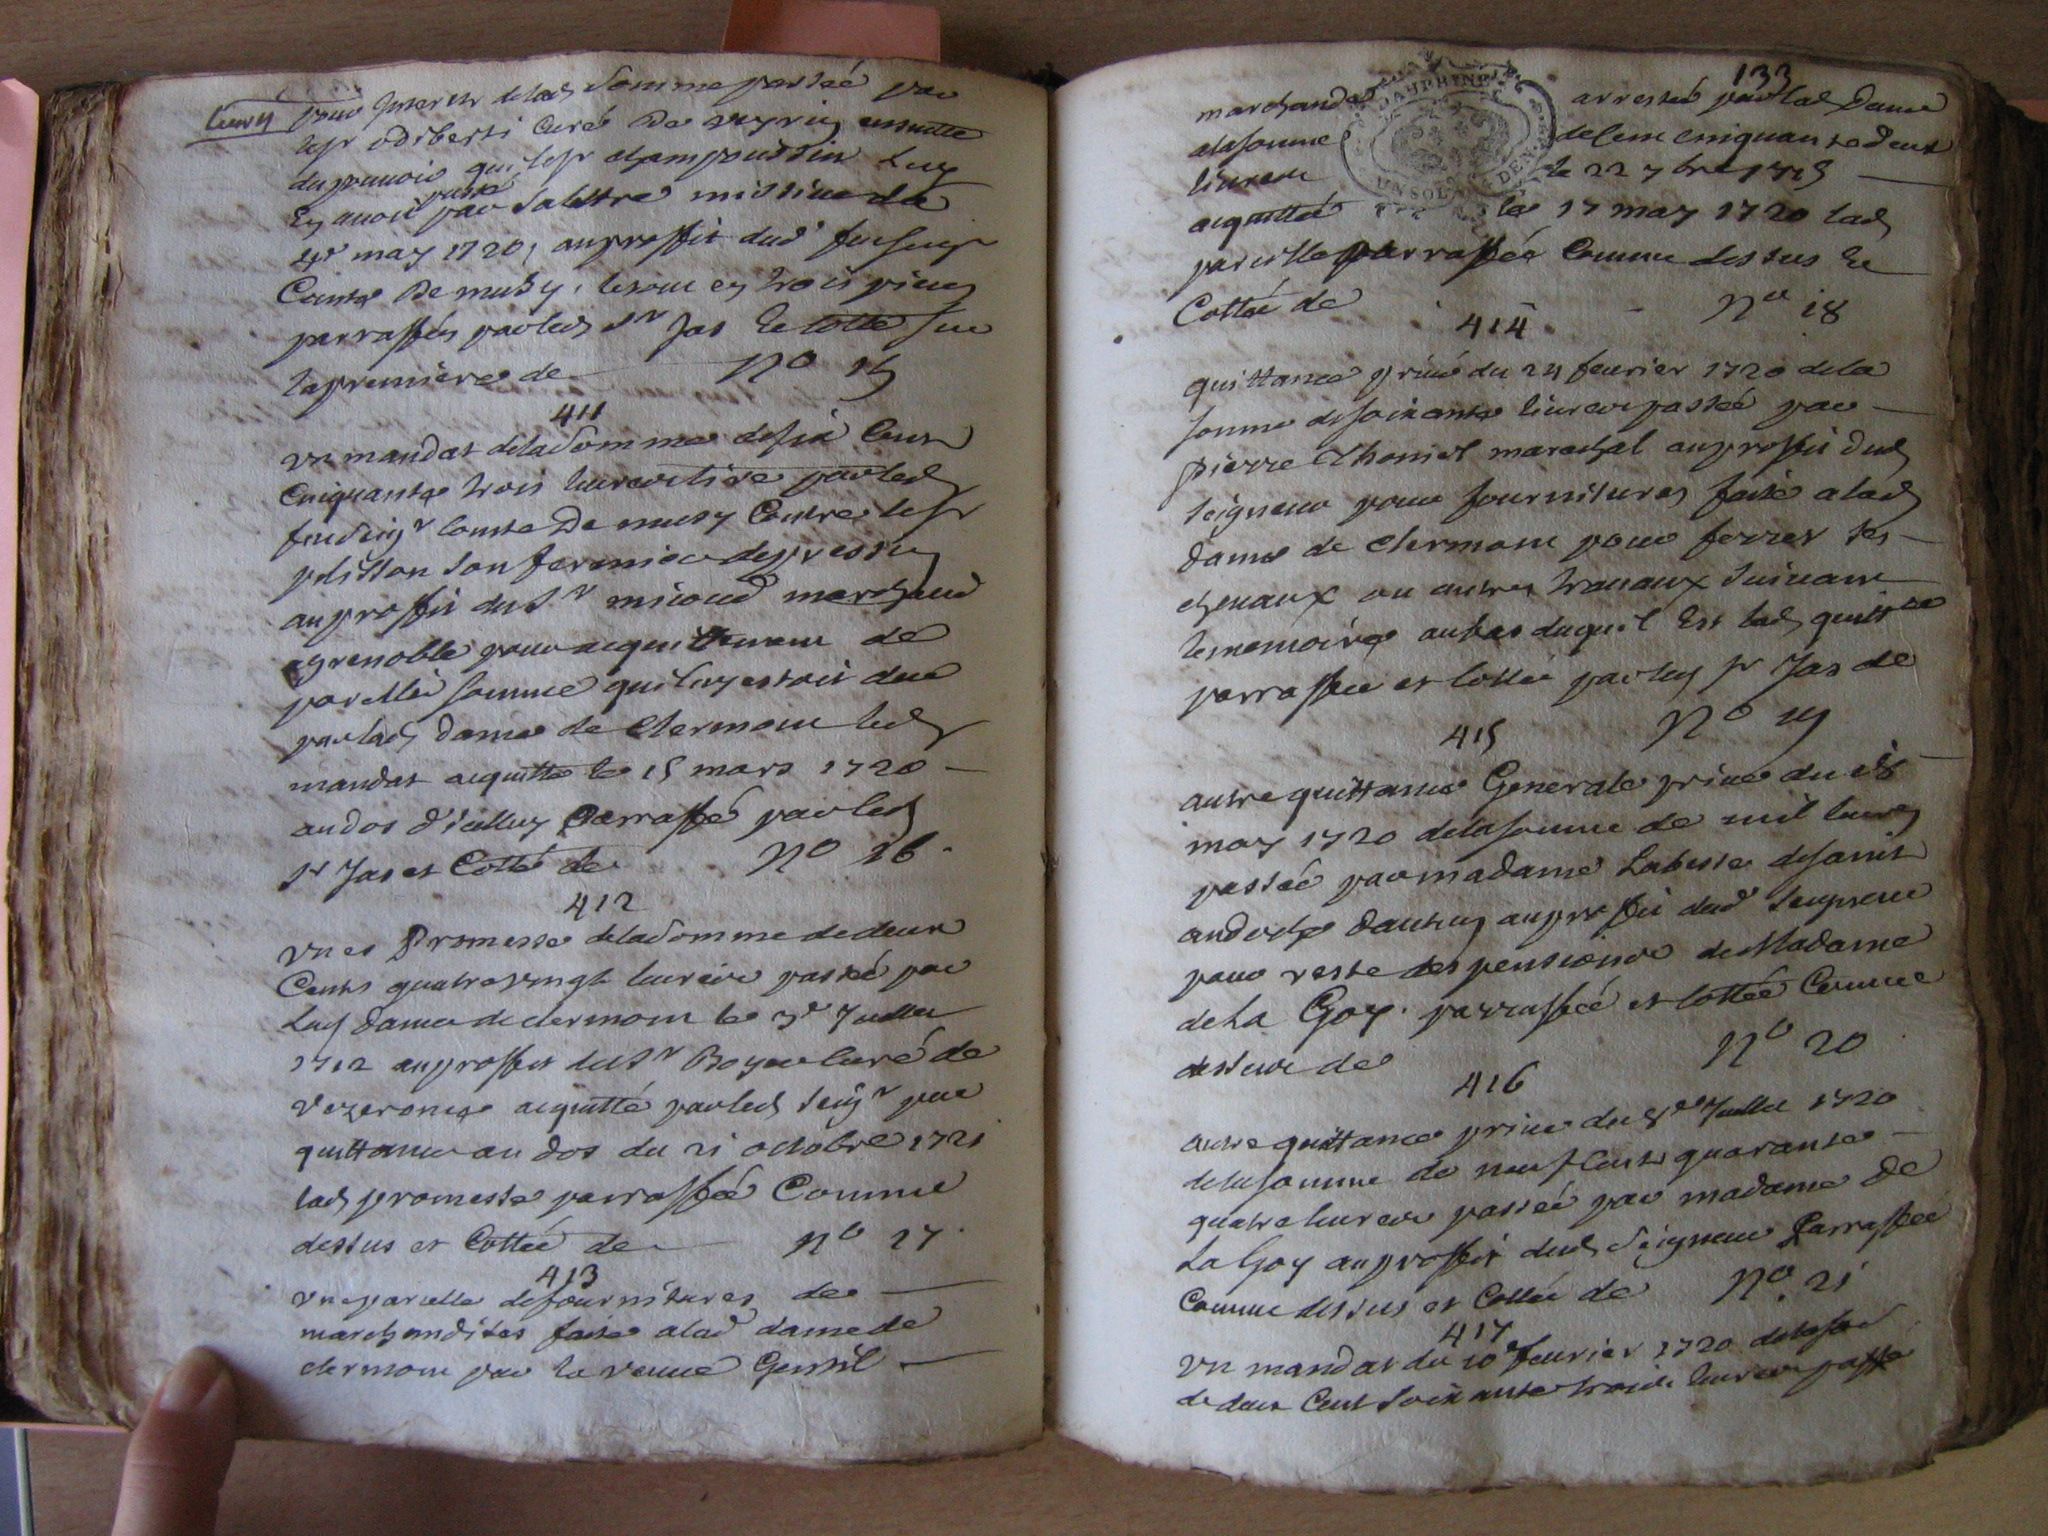 pour Interets delad somme passeé par
le sr odiberti Curé De veyrin ensuitte
du pouuoir qui le sr champoussin Luy
En auoit passé par sa lettre missiue du
4e may 1720, au proffit dud feu seigr
Comte De musy, le tout en trois pieces
parraffées par led Sr Jas Et Cotté sur
la premiere de No 15
411
vn mandat dela somme de six Cent
Cinquante trois liures tiré par led
feu seigr Comte De musy Contre le sr
pelisson son fermier de pressin
au proffit du Sr micoud marchand
a grenoble pour acquittement de
pareille somme qui luy estoit deue
par lad dame de Clermont led
mandat acquitté le 15 mars 1720
au dos d'icelluy Parraffé par led
sr Jas et Cotté de No 16
412
vne Promesse dela somme de deux
Cents quatre vingt liures passeé par
Lad dame de clermont le 3e Juillet
1712 au proffit du Sr Curé de
Vezeronce acquitté par led seigr par
quittance au dos du 21 octobre 1721
lad promesse parraffeé Comme
dessus et Cotteé de No 17
413
vne parcelle de fournitures de
marchandises faite a lad dame de
clermont par la veuue Gentil
133
DAUPHINE
UN SOL DEN
marchande arresteé par lad Dame
a la somme de Cent Cinquante deux
liures le 22 7bre 1715
acquitteé le 17 may 1720 lad
parcelle parraffeé Comme dessus Et
Cotteé de No 18
414
quittance priué du 24 feurier 1720 dela
somme de soixante liures passeé par
pierre Thomet marechal au proffit dud
seigneur pour fournitures faite a lad
dame de Clermont pour ferrer ses
cheuaux ou autres trauaux suiuant
le memoire au bas duquel Est lad quittce
parraffeé et Cotteé par led sr Jas de
No 19
415
autre quittance Generale priueé du 18
may 1720 dela somme de mil liures
passeé par madame Labesse de saint
andre au proffit dud seigneur
pour reste des pensions de Madame
de La Goy. parraffeé et Cotteé Comme
dessus de No 20
416
autre quittance priueé du 8e Juillet 1720
dela somme de neuf Cents quarante
quatre liures passeé par madame De
La Goy au proffit dud seigneur Parraffeé
Comme dessus et Cotteé de No 21
417
vn mandat du 10e feurier 1720 dela som
de deux Cent soixante trois liures passé